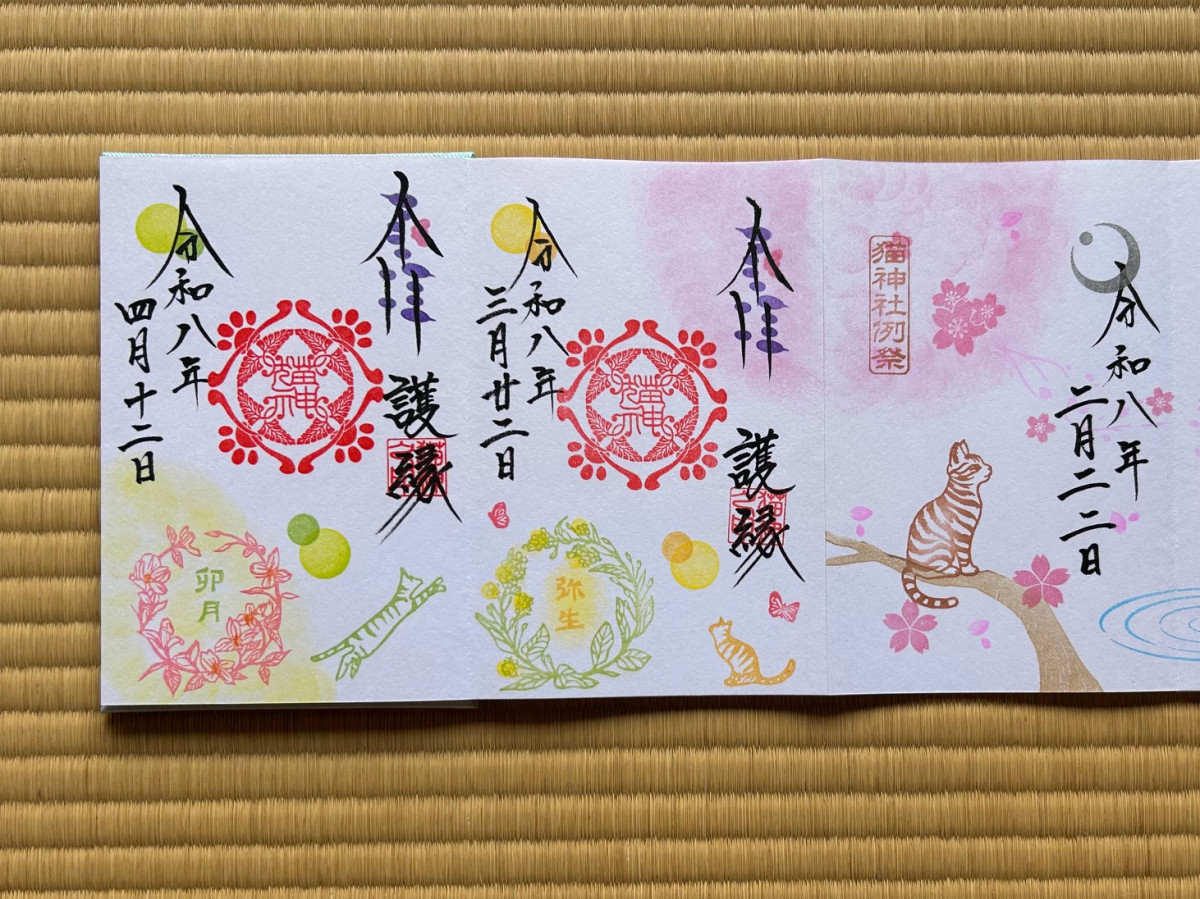 令和八年
二月二二日
猫神社例祭
奉拝
護縁
猫神
令和八年
三月廿二日
弥生
奉拝
護縁
猫神
令和八年
四月十二日
卯月